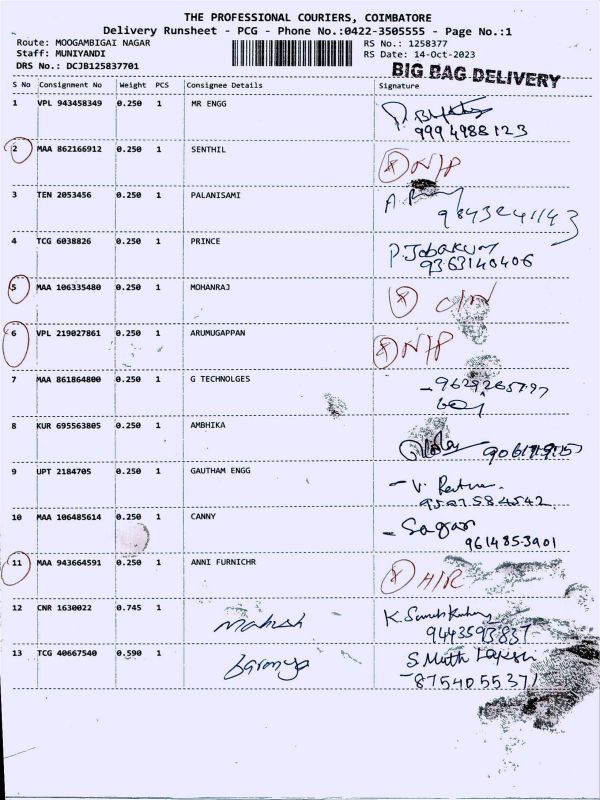 THE PROFESSIONAL COURIERS, COIMBATORE
Delivery Runsheet - PCG - Phone No.:0422-3505555 - Page No.:1
Route: MOOGAMBIGAI NAGAR RS No.: 1258377
Staff: MUNIYANDI RS Date: 14-Oct-2023
DRS No.: DCJB125837701 BIG BAG DELIVERY
S No Consignment No Weight PCS Consignee Details Signature
1 VPL 943458349 0.250 1 MR ENGG
9994988123
2 MAA 862166912 0.250 1 SENTHIL N/P
3 TEN 2053456 0.250 1 PALANISAMI
9843241143
4 TCG 6038826 0.250 1 PRINCE
9363140406
5 MAA 106335480 0.250 1 MOHANRAJ
6 VPL 219027861 0.250 1 ARUMUGAPPAN N/P
7 MAA 861864800 0.250 1 G TECHNOLGES
8 KUR 695563805 0.250 1 AMBHIKA
9 UPT 2184705 0.250 1 GAUTHAM ENGG
10 MAA 106485614 0.250 1 CANNY Sagar
9614853901
11 MAA 943664591 0.250 1 ANNI FURNICHR
12 CNR 1630022 0.745 1 Mahesh
9443593837
13 TCG 40667540 0.590 1 Saranya
8754055371